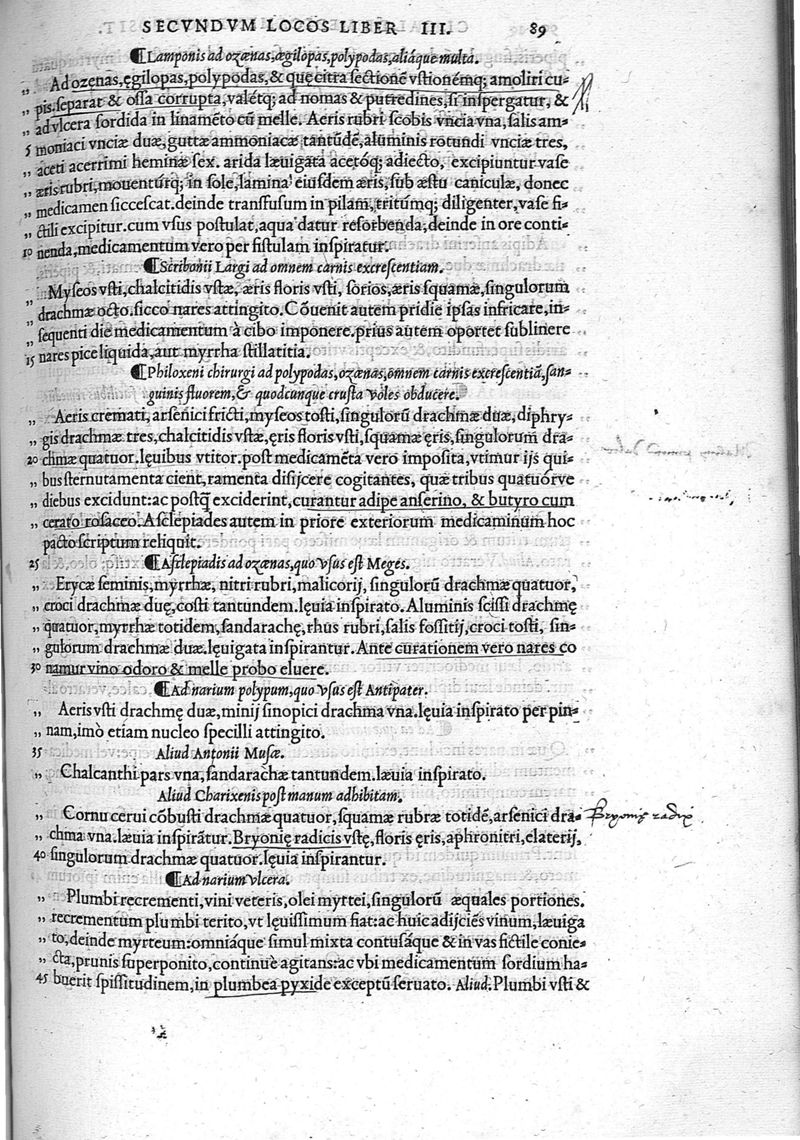 SECVNDVM LOCOS LIBER III. 89
¶Lamponis ad ozænas, ægilopas, polypodas, aliáque multa.
„ Ad ozenas, ęgilopas, polypodas, & quę citra sectionē vstionémq; amoliri cu-
„ pis. separat & ossa corrupta, valétq; ad nomas & putredines, si inspergatur, &
„ ad vlcera sordida in linamēto cū melle. Aeris rubri scobis vncia vna, salis am-
5 moniaci vnciæ duæ, guttæ ammoniacæ tantūdē, aluminis rotundi vnciæ tres,
„ aceti acerrimi heminæ sex. arida læuigata acetóq; adiecto, excipiuntur vase
„ æris rubri, mouentúrq; in sole, lamina eiusdem æris, sub æstu caniculæ, donec
„ medicamen siccescat. deinde transfusum in pilam, tritúmq; diligenter, vase fi-
„ ctili excipitur. cum vsus postulat, aqua datur resorbenda, deinde in ore conti-
10 nenda, medicamentum vero per fistulam inspiratur.
¶Scribonii Largi ad omnem carnis excrescentiam.
„ Myseos vsti, chalcitidis vstæ, æris floris vsti, sorios, æris squamæ, singulorum
„ drachmæ octo. sicco nares attingito. Cōuenit autem pridie ipsas infricare, in-
„ sequenti die medicamentum à cibo imponere. prius autem oportet sublinere
15 nares pice liquida, aut myrrha stillatitia.
¶Philoxeni chirurgi ad polypodas, ozænas, omnem carnis excrescentiā, san-
guinis fluorem, & quodcunque crusta voles obducere.
„ Aeris cremati, arsenici fricti, myseos tosti, singulorū drachmæ duæ, diphry-
„ gis drachmæ tres, chalcitidis vstæ, ęris floris vsti, squamæ ęris, singulorum dra-
20 chmæ quatuor. lęuibus vtitor. post medicamēta vero imposita, vtimur ijs qui-
„ bus sternutamenta cient, ramenta disijcere cogitantes, quæ tribus quatuórve
„ diebus excidunt: ac postq̄ exciderint, curantur adipe anserino, & butyro cum
„ cerato rosaceo. Asclepiades autem in priore exteriorum medicaminum hoc
pacto scriptum reliquit.
25 ¶Asclepiadis ad ozænas, quo vsus est Meges.
„ Erycæ seminis, myrrhæ, nitri rubri, malicorij, singulorū drachmæ quatuor,
„ croci drachmæ duę, costi tantundem. lęuia inspirato. Aluminis scissi drachmę
„ quatuor, myrrhæ totidem, sandarachę, rhus rubri, salis fossitij, croci tosti, sin-
„ gulorum drachmæ duæ. lęuigata inspirantur. Ante curationem vero nares co
30 namur vino odoro & melle probo eluere.
¶Ad narium polypum, quo vsus est Antipater.
„ Aeris vsti drachmę duæ, minij sinopici drachma vna. lęuia inspirato per pin-
„ nam, imò etiam nucleo specilli attingito.
35 Aliud Antonii Musæ.
„ Chalcanthi pars vna, sandarachæ tantundem. læuia inspirato.
Aliud Charixenis post manum adhibitam.
„ Cornu cerui cōbusti drachmæ quatuor, squamæ rubræ totidē, arsenici dra- Bryonię radix
„ chma vna. læuia inspirātur. Bryonię radicis vstę, floris ęris, aphronitri, elaterij,
40 singulorum drachmæ quatuor. lęuia inspirantur.
¶Ad narium vlcera.
„ Plumbi recrementi, vini veteris, olei myrtei, singulorū æquales portiones.
„ recrementum plumbi terito, vt lęuissimum fiat: ac huic adijciēs vinum, læuiga
„ to, deinde myrteum: omniáque simul mixta contusáque & in vas fictile conie-
„ cta, prunis superponito, continuè agitans: ac vbi medicamentum sordium ha-
45 buerit spissitudinem, in plumbea pyxide exceptū seruato. Aliud. Plumbi vsti &